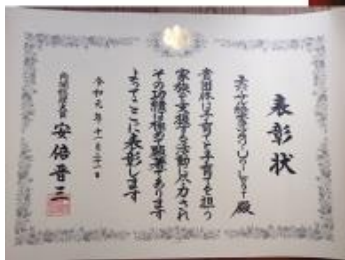 表彰状
殿
貴団体は子育てと子育てを担う
家族を支援する活動に尽力され
その功績は極めて顕著であります
よってここに表彰します
令和元年十一月二十
内閣総理大臣 安倍晋三